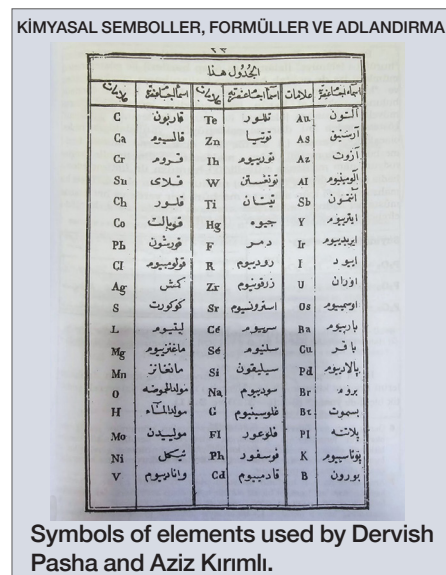 KİMYASAL SEMBOLLER, FORMÜLLER VE ADLANDIRMA
الجدول هذا
علامات
آلتون Au تللور Te قاربون C
آرسنيق As توتيا Zn قالسيوم Ca
آزوت Az توريوم Th قروم Cr
آلومينيوم Al تونغستن W قلاى Sn
آنتمون Sb تيتان Ti قلور Ch
ايتريوم Y جيوه Hg قوبالت Co
ايريديوم Ir دمر F قورشون Pb
ايود I روديوم R قولومبيوم Cl
اوران U زرقونيوم Zr كمش Ag
اوسميوم Os استرونسيوم Sr كوكورت S
باريوم Ba سريوم Cé ليتيوم L
باقر Cu سلنيوم Sé ماغنزيوم Mg
پالاديوم Pd سيليقون Si مانغانز Mn
بروم Br سوديوم Na مولد الحموضه O
بسموت Bt غلوسينيوم G مولد الماء H
پلاتنه Pl فلوعور Fl موليبدن Mo
پوتاسيوم K فوسفور Ph نيكل Ni
بورون B قادميوم Cd واناديوم V
Symbols of elements used by Dervish
Pasha and Aziz Kırımlı.